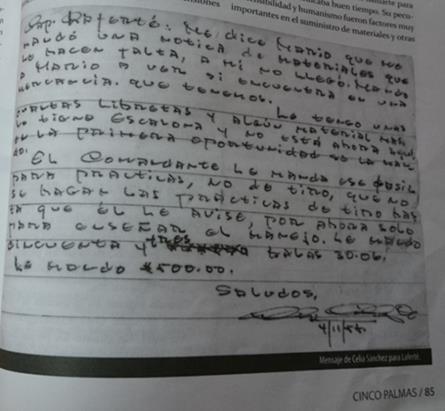 caba buen tiempo. Su pecu-
nsibilidad y humanismo fueron factores muy
importantes en el suministro de materiales y otras
Sr. Laferté: Me dice Mario que me
mandó una notica de materiales que
le hacen falta, a mí no llegó. Mando
a Mario a ver si encuentra en una
mercancía. que tenemos.
Le tengo unas
cuantas libretas y algún material más
lo tiene Escalona y no está ahora aquí
en la primera oportunidad se la man
do.
El Comandante le manda ese fusil
para prácticas, no de tiro, que no
se hagan las prácticas de tiro has
ta que él le avise, por ahora solo
para enseñar el manejo. Le mando
cincuenta y tres balas 30.06.
Le mando $500.00.
Saludos,
4/11/58
Mensaje de Celia Sánchez para Laferté.
CINCO PALMAS / 85